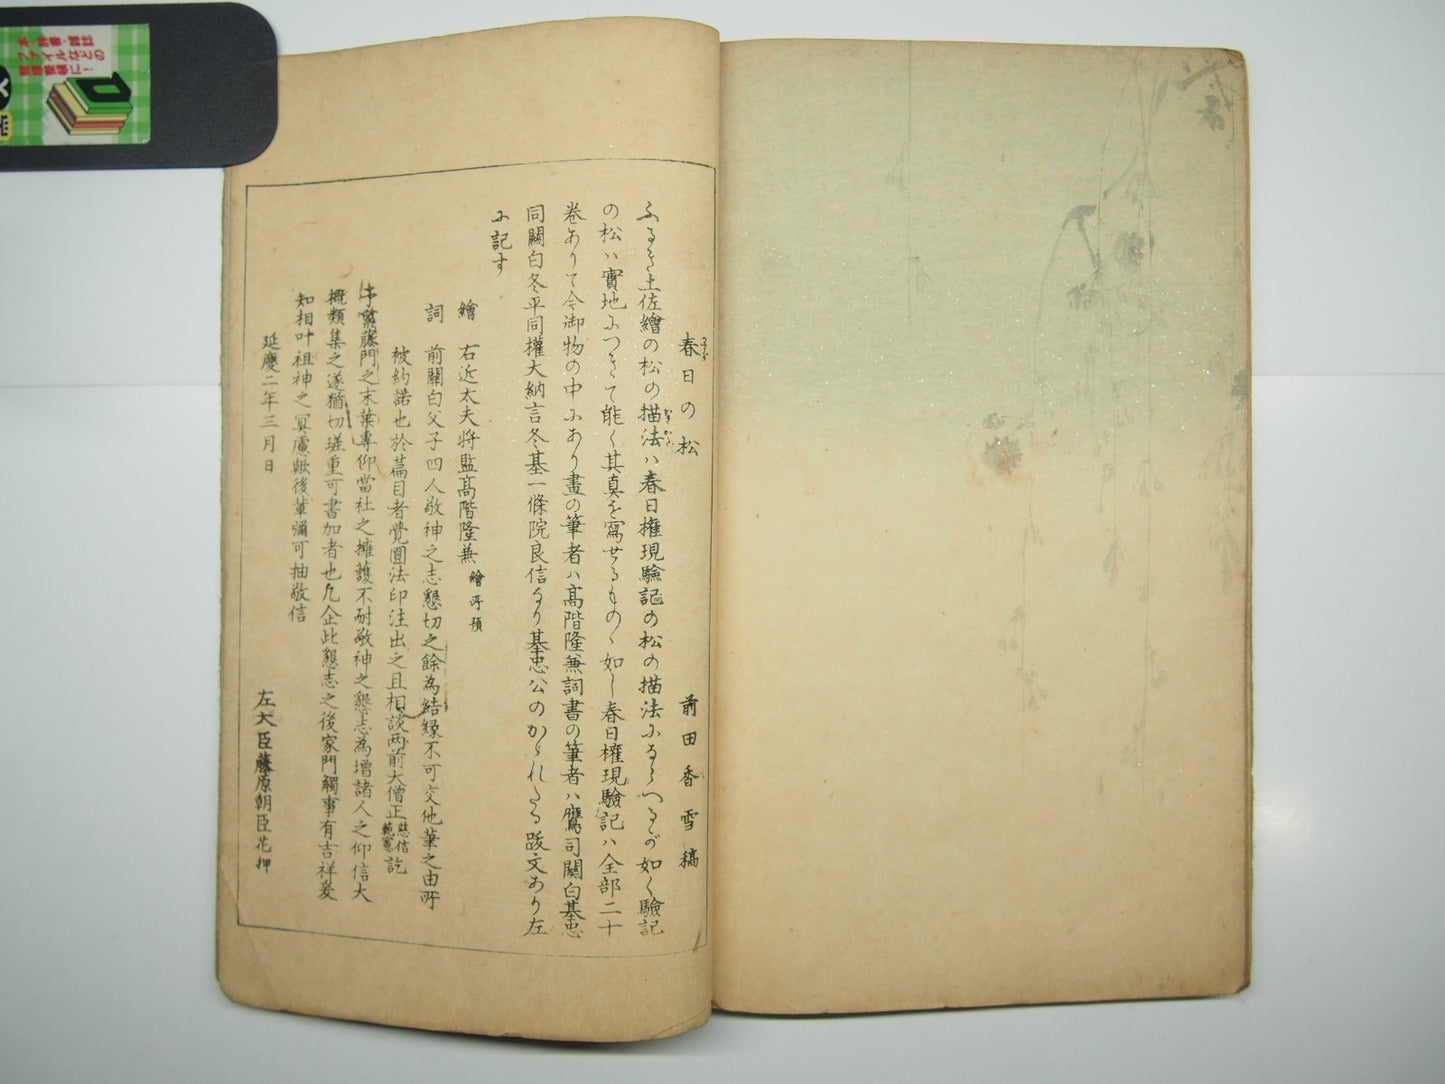 春日の松
前田香雪稿
ふるき土佐繪の松の描法ハ春日權現驗記の松の描法によるへし如く驗記
の松ハ實地につきて能く其真を寫せるものゝ如し春日權現驗記ハ全部二十
卷ありて今御物の中にあり畫の筆者ハ高階隆兼詞書の筆者ハ鷹司關白基忠
同關白冬平同權大納言冬基一條院良信なり基忠公のかゝれたる跋文あり左
に記す
繪 右近太夫將監高階隆兼 繪所預
詞 前關白父子四人敬神之志懇切之餘為結縁不可交他筆之由所
被約諾也於篇目者覺圓法印注出之且相談两前大僧正慈信範憲訖
之末葉專仰當社之擁護不耐敬神之懇志為增諸人之仰信大
概類集之遂猶切瑳重可書加者也凡企此懇志之後家門觸事有吉祥爰
知相叶祖神之冥慮歟後輩彌可抽敬信
延慶二年三月日
左大臣藤原朝臣花押
本・辞書・雑誌
ファイルなどの
整理整頓に！